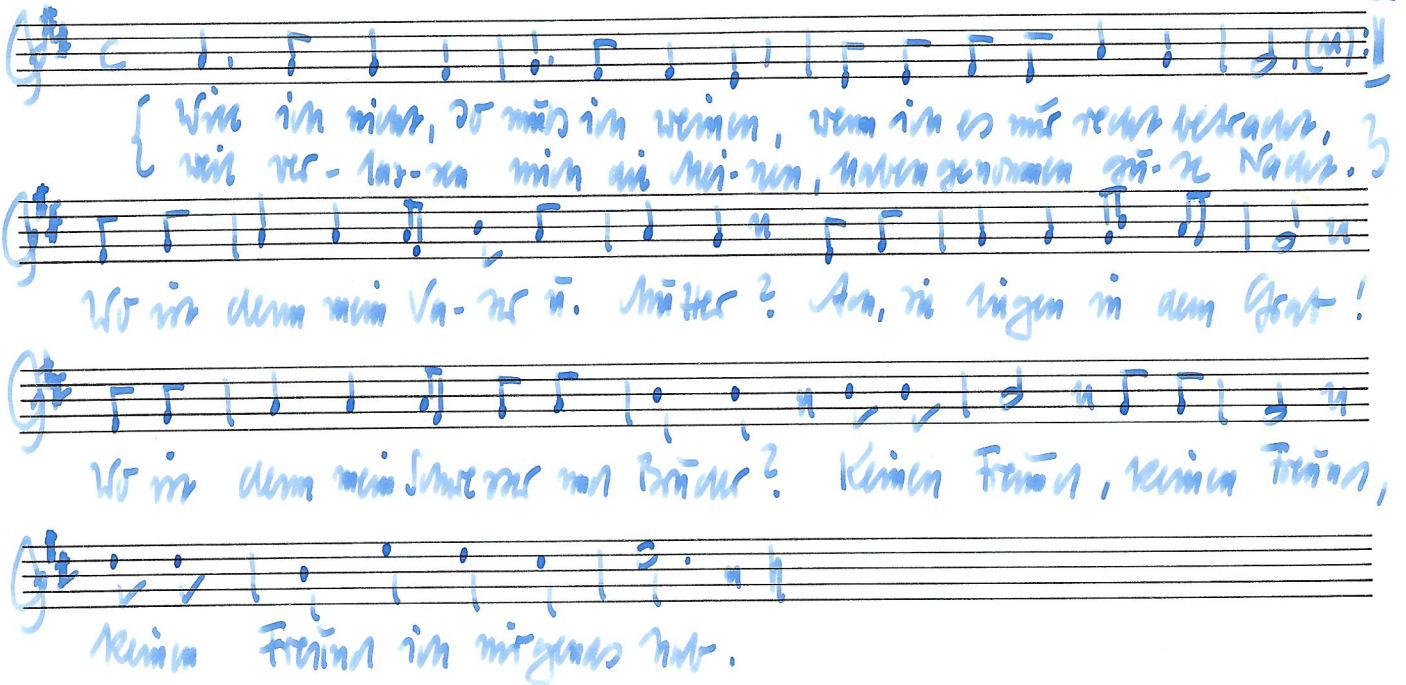 Will ich nicht, so muß ich weinen, wenn ich es nur recht betracht,
weil ver-las-sen mich die Mei-nen, haben genommen gu-te Nacht.
Wo ist denn mein Va-ter u. Mutter? Ach, sie liegen in dem Grab!
Wo ist denn mein Schwester und Bruder? Keinen Freund, keinen Freund,
keinen Freund ich nirgends hab.